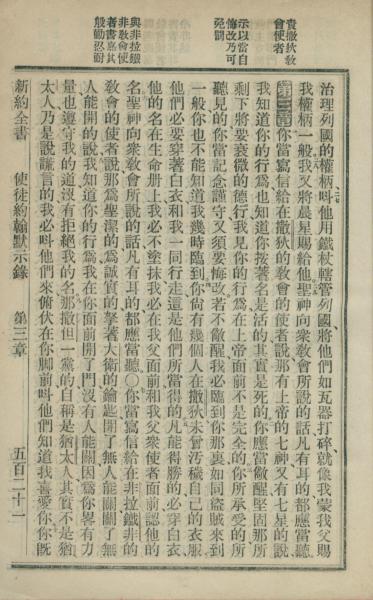 責撒狄敎
會使者
示以當自
悔改乃可
免罰
與非拉鐵
非敎會使
者書嘉其
般勤忍耐
治理列國的權柄叫他用鐵杖轄管列國將他們如瓦器打碎就像我蒙我父賜
我權柄一般我又將晨星賜給他聖神向衆敎會所說的話凡有耳的都應當聽
第三章你當寫信給在撒狄的敎會的使者說那有上帝的七神又有七星的說
我知道你的行爲也知道你按著名是活的其實是死的你應當儆醒堅固那所
剩下將要衰微的德行我見你的行爲在上帝面前不是完全的你所承受的所
聽見的你當記念謹守又須要悔改若不儆醒我必臨到你那裏如同盜賊來到
一般你也不能知道我幾時臨到你尙有幾個人在撒狄未曾汚穢自己的衣服
他們必要穿著白衣和我一同行走這是他們所當得的凡能得勝的必穿白衣
他的名在生命册上我必不塗抹我必在我父面前和我父衆使者面前認他的
名聖神向衆敎會所說的話凡有耳的都應當聽〇你當寫信給在非拉鐵非的
敎會的使者說那爲聖潔的爲誠實的拏著大衛的鑰匙開了無人能關關了無
人能開的說我知道你的行爲我在你面前開了門沒有人能關因爲你畧有力
量也遵守我的道沒有拒絕我的名那撒但一黨的自稱是猶太人其實不是猶
太人乃是說謊言的我必叫他們來俯伏在你脚前叫他們知道我喜愛你你旣
新約全書 使徒約翰默示錄 第三章 五百二十一